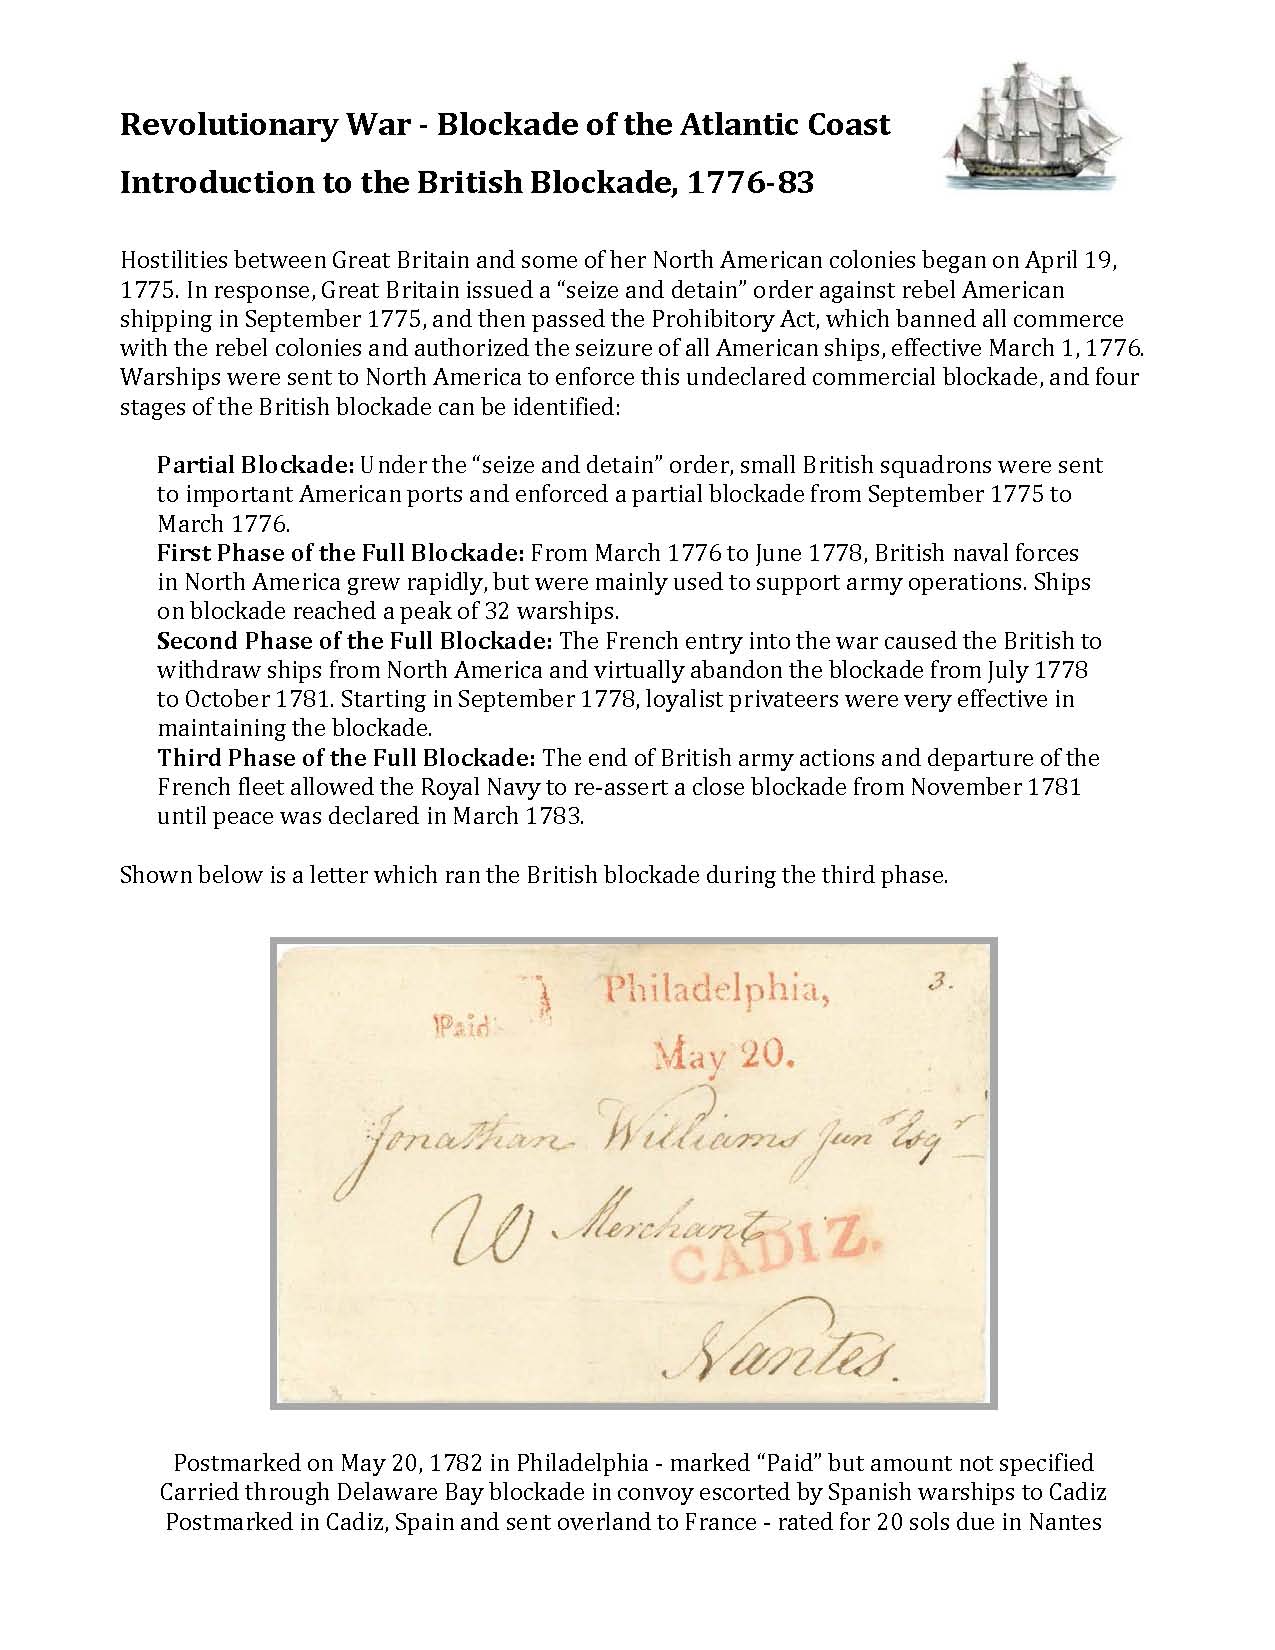 Revolutionary War - Blockade of the Atlantic Coast
Introduction to the British Blockade, 1776-83
Hostilities between Great Britain and some of her North American colonies began on April 19,
1775. In response, Great Britain issued a “seize and detain” order against rebel American
shipping in September 1775, and then passed the Prohibitory Act, which banned all commerce
with the rebel colonies and authorized the seizure of all American ships, effective March 1, 1776.
Warships were sent to North America to enforce this undeclared commercial blockade, and four
stages of the British blockade can be identified:
Partial Blockade: Under the “seize and detain” order, small British squadrons were sent
to important American ports and enforced a partial blockade from September 1775 to
March 1776.
First Phase of the Full Blockade: From March 1776 to June 1778, British naval forces
in North America grew rapidly, but were mainly used to support army operations. Ships
on blockade reached a peak of 32 warships.
Second Phase of the Full Blockade: The French entry into the war caused the British to
withdraw ships from North America and virtually abandon the blockade from July 1778
to October 1781. Starting in September 1778, loyalist privateers were very effective in
maintaining the blockade.
Third Phase of the Full Blockade: The end of British army actions and departure of the
French fleet allowed the Royal Navy to re-assert a close blockade from November 1781
until peace was declared in March 1783.
Shown below is a letter which ran the British blockade during the third phase.
Philadelphia, 3.
Paid
May 20.
Jonathan Williams Junr Esqr
Merchant
CADIZ.
Nantes.
Postmarked on May 20, 1782 in Philadelphia - marked “Paid” but amount not specified
Carried through Delaware Bay blockade in convoy escorted by Spanish warships to Cadiz
Postmarked in Cadiz, Spain and sent overland to France - rated for 20 sols due in Nantes